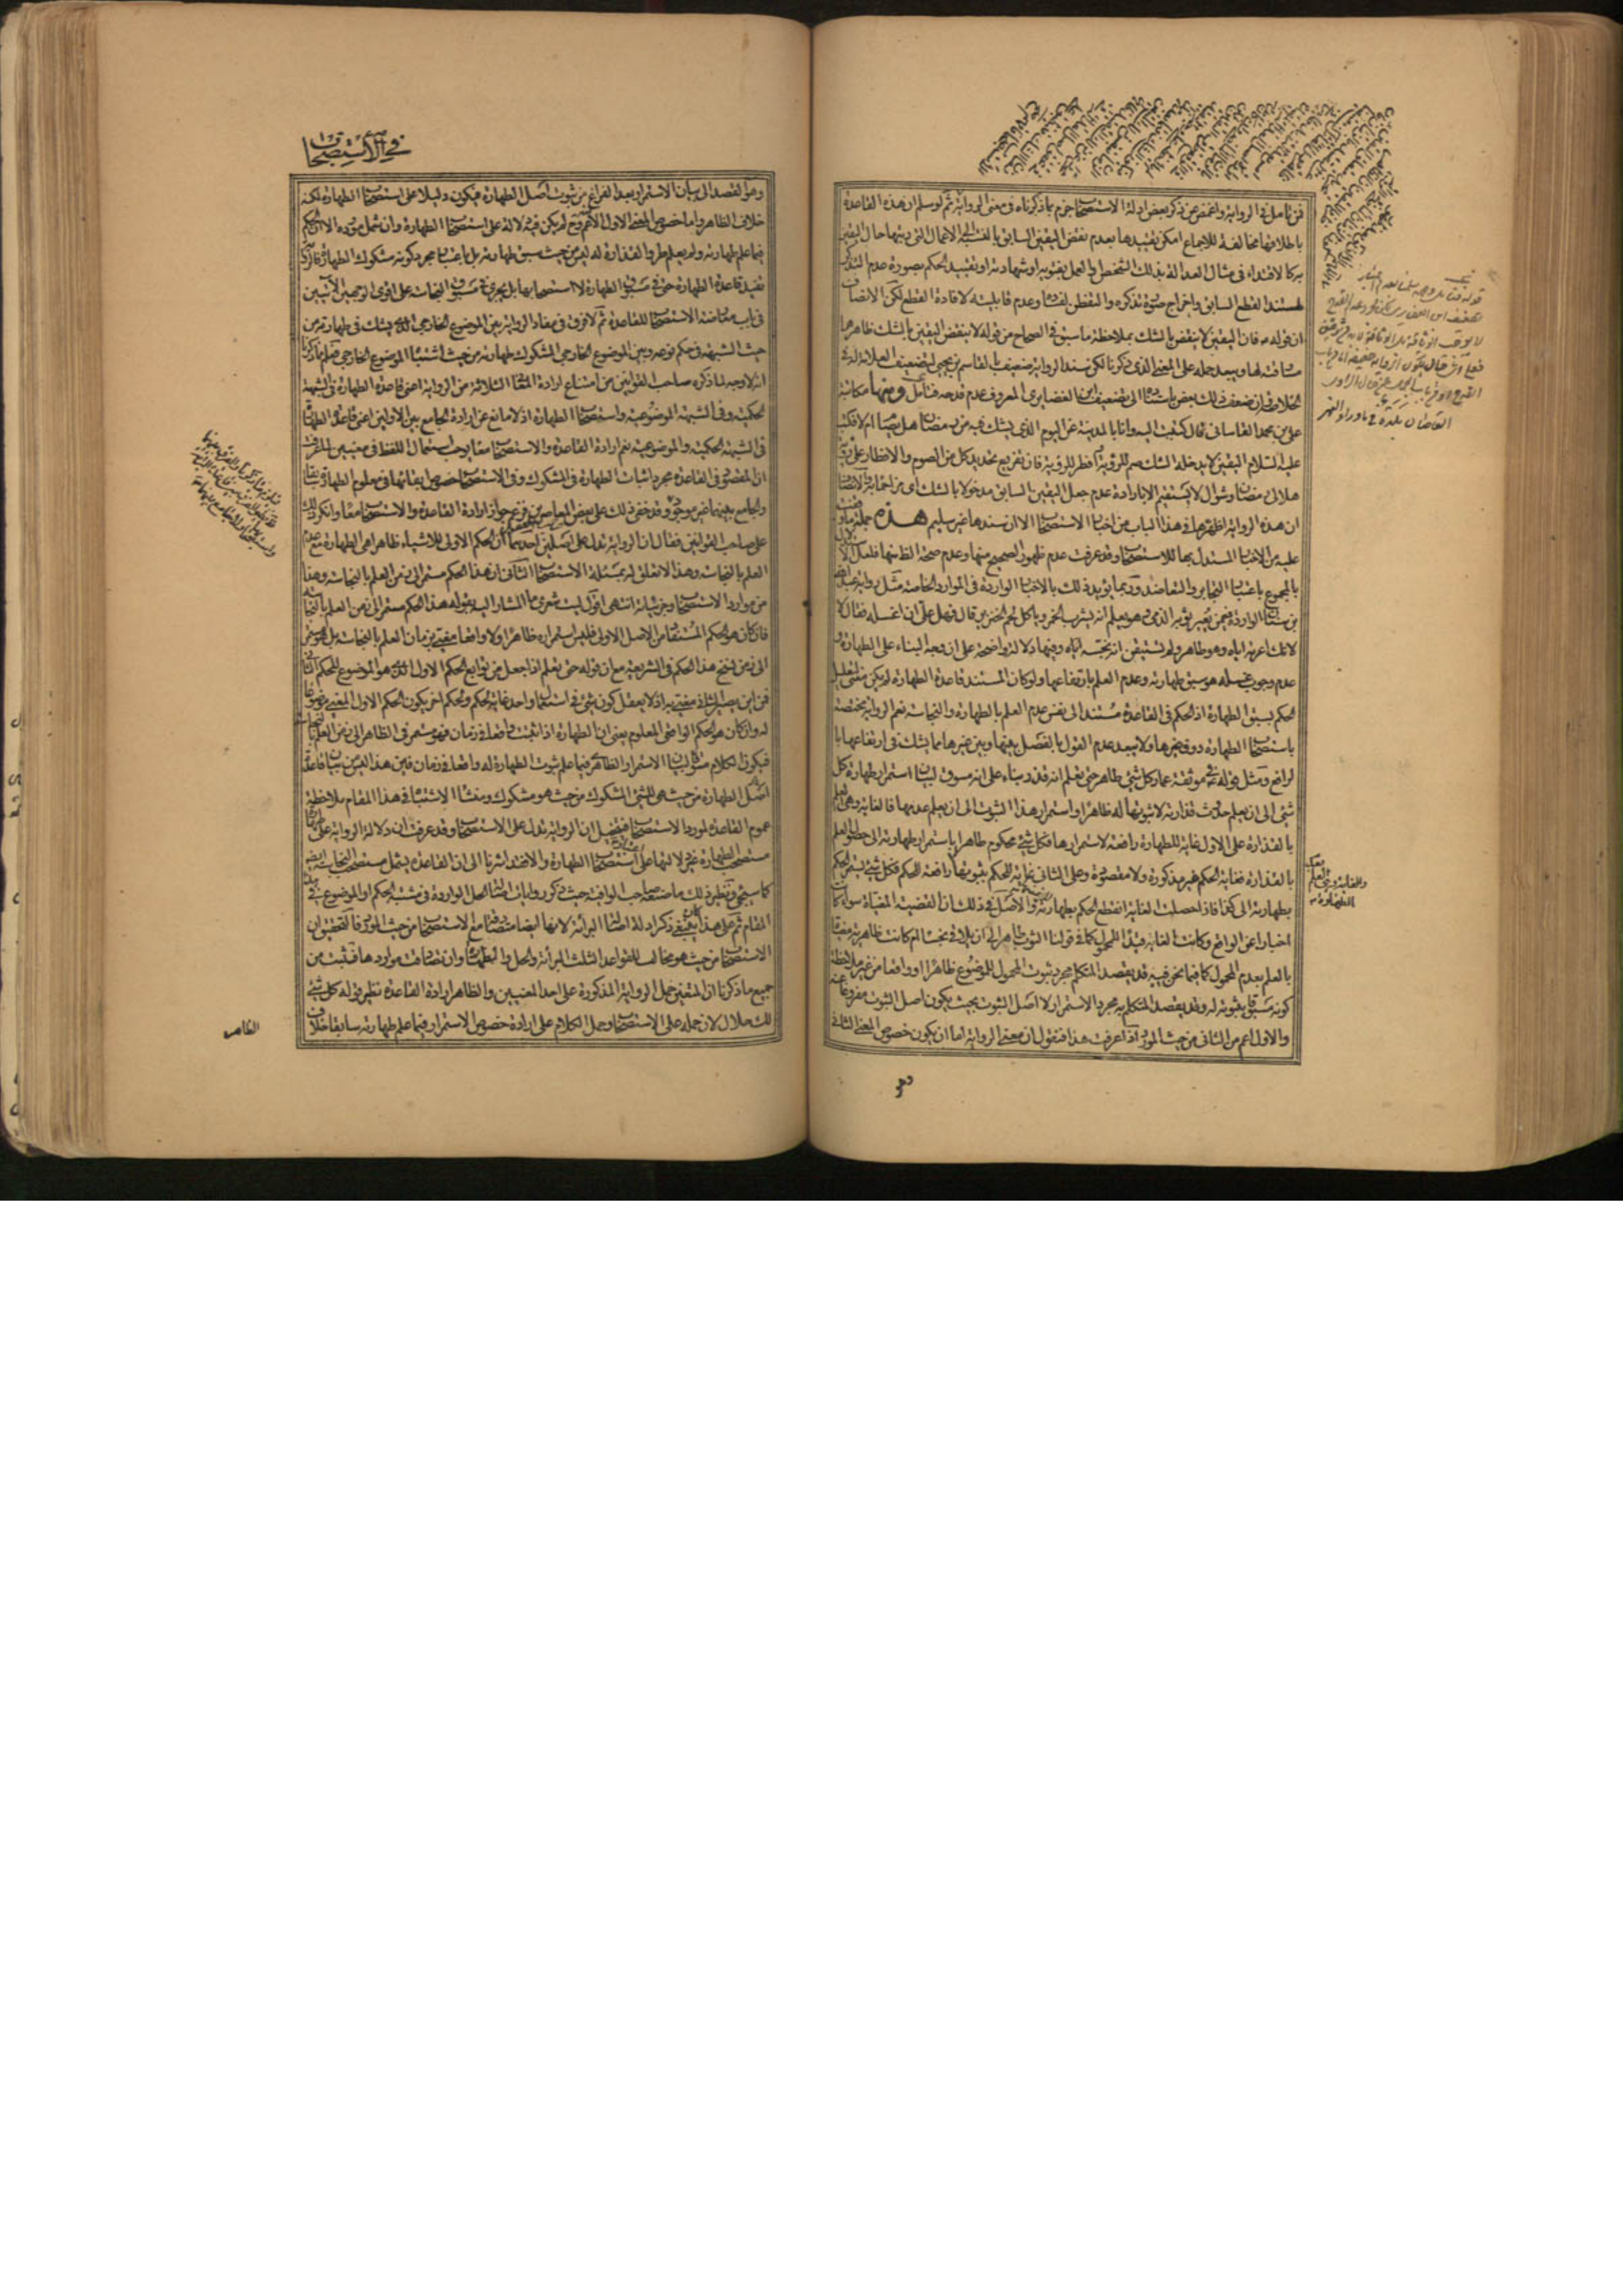 فمن تأمل في الرواية واغمض عن ذكر بعض ادلة الاستصحاب جزم بما ذكرناه في معنى الرواية ثم لو سلم ان هذه القاعدة
باطلاقها مخالفة للاجماع امكن تقييدها بعدم نقض اليقين السابق بالنسبة الى الاعمال التي رتبها حال اليقين
به كالاقتداء في مثال العدالة بذلك الشخص والعمل بفتويه او شهادته او تقييد الحكم بصورة عدم التذكر
لمستند القطع السابق واخراج صورة تذكره والتفطن لفساده وعدم قابليته لافادة القطع لكن الانصاف
ان قوله فان اليقين لا ينقض بالشك بملاحظة ما سبق في الصحاح من قوله لا ينقض اليقين بالشك ظاهره
مساوقته لها ويبعد حمله على المعنى الذي ذكرنا لكن سند الرواية ضعيف بالقاسم بن يحيى لتضعيف العلامة له في
الخلاصة وان ضعف ذلك بعض باستناده الى تضعيف ابن الغضايرى المعروف عدم قدحه فتامل ومنها مكاتبة
على بن محمد القاسانى قال كتبت اليه وانا بالمدينة عن اليوم الذي يشك فيه من رمضان هل يصام ام لا فكتب
عليه السلام اليقين لا يدخله الشك صم للرؤية وافطر للرؤية فان تفريع تحديد كل من الصوم والافطار على رؤية
هلالى رمضان وشوال لا يستقيم الا بارادة عدم جعل اليقين السابق مدخولا بالشك اى مزاحما به والانصاف
ان هذه الرواية اظهرها في هذا الباب من اخبار الاستصحاب الا ان سندها غير سليم هذه جملة ما وقفت
عليه من الاخبار المستدل بها للاستصحاب وقد عرفت عدم ظهور الصحيح منها وعدم صحة الظاهر منها فلعل الاستدلال
بالمجموع باعتبار التجابر والتعاضد وربما يؤيد ذلك بالاخبار الواردة في الموارد الخاصة مثل رواية عبد الله
بن سنان الواردة فيمن يعير ثوبه الذمى وهو يعلم انه يشرب الخمر وياكل لحم الخنزير قال فهل على ان اغسله فقال لا
لانك اعرته اياه وهو طاهر ولم تستيقن انه نجسه اياه وفيها دلالة واضحة على ان وجه البناء على الطهارة و
عدم وجوب غسله هو سبق طهارته وعدم العلم بارتفاعها ولو كان المستند قاعدة الطهارة لم يكن معنى لتعليل
الحكم بسبق الطهارة اذ الحكم في القاعدة مستند الى نفس عدم العلم بالطهارة والنجاسة نعم الرواية مختصة
باستصحاب الطهارة دون غيرها ولا يبعد عدم القول بالفصل بينها وبين غيرها مما يشك في ارتفاعها با
لرافع ومثل قوله في موثقة عمار كل شئ طاهر حتى تعلم انه قذر بناء على انه مسوق لبيان استمرار طهارة كل
شئ الى ان يعلم حدوث قذارته لا ثبوتها له ظاهرا واستمرار هذا الثبوت الى ان يعلم عدمها فالغاية وهى العلم
بالقذارة على الاول غاية للطهارة رافعة لاستمرارها فكل شئ محكوم ظاهرا باستمرار طهارته الى حصول العلم
بالقذارة فغاية الحكم غير مذكورة ولا مقصودة وعلى الثاني غاية للحكم بثبوتها رافعة للحكم فكل شئ يستمر الحكم
بطهارته الى كذا فاذا حصلت الغاية انقطع الحكم بطهارته والاصل في ذلك ان القضية المغياة سواء كانت
اخبارا عن الواقع وكانت الغاية قيدا للمحمول كما في قولنا الثوب طاهر الى ان يلاقي نجسا ام كانت ظاهرية مغياة
بالعلم بعدم المحمول كما فيما نحن فيه قد يقصد المتكلم مجرد ثبوت المحمول للموضوع ظاهرا او واقعا من غير ملاحظة
كونه مسبوقا بثبوته له وقد يقصد المتكلم به مجرد الاستمرار لا اصل الثبوت بحيث يكون اصل الثبوت مفروغا عنه
والاول اعم من الثاني من حيث المورد اذا عرفت هذا فنقول ان معنى الرواية اما ان يكون خصوص المعنى الثاني
وهو
في الاستصحاب
وهو القصد الى بيان الاستمرار بعد الفراغ من ثبوت اصل الطهارة فيكون دليلا على استصحاب الطهارة لكنه
خلاف الظاهر واما خصوص المعنى الاول الاعم منه وح لم يكن فيه دلالة على استصحاب الطهارة وان شمل مورده لان الحكم
فيما علم طهارته ولم يعلم طرو القذارة له ليس من حيث سبق طهارته بل باعتبار مجرد كونه مشكوك الطهارة فالرواية
تفيد قاعدة الطهارة حتى في مسبوق الطهارة لا استصحابها بل يجرى في مسبوق النجاسة على اقوى الوجهين الآتيين
في باب معارضة الاستصحاب للقاعدة ثم لا فرق في مفاد الرواية بين الموضوع الخارجى الذى يشك في طهارته من
حيث الشبهة في حكم نوعه وبين الموضوع الخارجى المشكوك طهارته من حيث اشتباه الموضوع الخارجى فعلم مما ذكرنا
انه لا وجه لما ذكره صاحب القوانين من امتناع ارادة المعانى الثلاثة من الرواية اعنى قاعدة الطهارة في الشبهة
الحكمية وفي الشبهة الموضوعية واستصحاب الطهارة اذ لا مانع عن ارادة الجامع بين الاولين اعنى قاعدة الطهارة
في الشبهة الحكمية والموضوعية نعم ارادة القاعدة والاستصحاب معا يوجب استعمال اللفظ في معنيين لما عرفت
ان المقصود في القاعدة مجرد اثبات الطهارة في المشكوك وفي الاستصحاب خصوص ابقائها في معلوم الطهارة سابقا
والجامع بينهما غير موجود وقد خفى ذلك على بعض المعاصرين فزعم جواز ارادة القاعدة والاستصحاب معا وانكر ذلك
على صاحب القوانين فقال ان الرواية تدل على اصلين احدهما ان الحكم الاولى للاشياء ظاهرا هى الطهارة مع عدم
العلم بالنجاسة وهذا لا تعلق له بمسئلة الاستصحاب الثاني ان هذا الحكم مستمر الى زمن العلم بالنجاسة وهذا
من موارد الاستصحاب وجزئياته انتهى اقول ليت شعرى ما المشار اليه بقوله هذا الحكم مستمر الى زمن العلم بالنجاسة
فان كان هو الحكم المستفاد من الاصل الاولى فليس استمراره ظاهرا ولا واقعا مغيى بزمان العلم بالنجاسة بل هو مستمر
الى زمن نسخ هذا الحكم في الشريعة مع ان قوله حتى تعلم اذا جعل من توابع الحكم الاول الذى هو الموضوع للحكم الثاني
فمن اين يصير الثاني مغيى به اذ لا يعقل كون شئ في استعمال واحد غاية لحكم ولحكم اخر يكون الحكم الاول المغيى موضوعا
له وان كان هو الحكم الواقعى المعلوم يعنى ان الطهارة اذا ثبتت واقعا في زمان فهو مستمر في الظاهر الى زمن العلم بالنجاسة
فيكون الكلام مسوقا لبيان الاستمرار الظاهرى فيما علم ثبوت الطهارة له واقعا في زمان فاين هذا من بيان قاعدة
الطهارة من حيث هى للشئ المشكوك من حيث هو مشكوك ومنشأ الاشتباه في هذا المقام ملاحظة
عموم القاعدة لمورد الاستصحاب فيتخيل ان الرواية تدل على الاستصحاب وقد عرفت ان دلالة الرواية على طهارة
مستصحب الطهارة غير دلالتها على استصحاب الطهارة والا فقد اشرنا الى ان القاعدة يشمل مستصحب النجاسة ايضا
كما سيجئ ونظير ذلك ما صنعه صاحب الوافية حيث ذكر روايات اصالة الحل الواردة في مشتبه الحكم او الموضوع في هذا
المقام ثم على هذا كان ينبغى ذكر ادلة اصالة البرائة لانها ايضا متصادقة مع الاستصحاب من حيث المورد فالتحقيق ان
الاستصحاب من حيث هو مخالف للقواعد الثلث البرائة والحل والطهارة وان تصادقت مواردها فثبت من
جميع ما ذكرنا ان المتعين حمل الرواية المذكورة على احد المعنيين والظاهر ارادة القاعدة نظير قوله كل شئ
لك حلال لان حمله على الاستصحاب وحمل الكلام على ارادة خصوص الاستمرار فيما علم طهارته سابقا خلاف
الظاهر